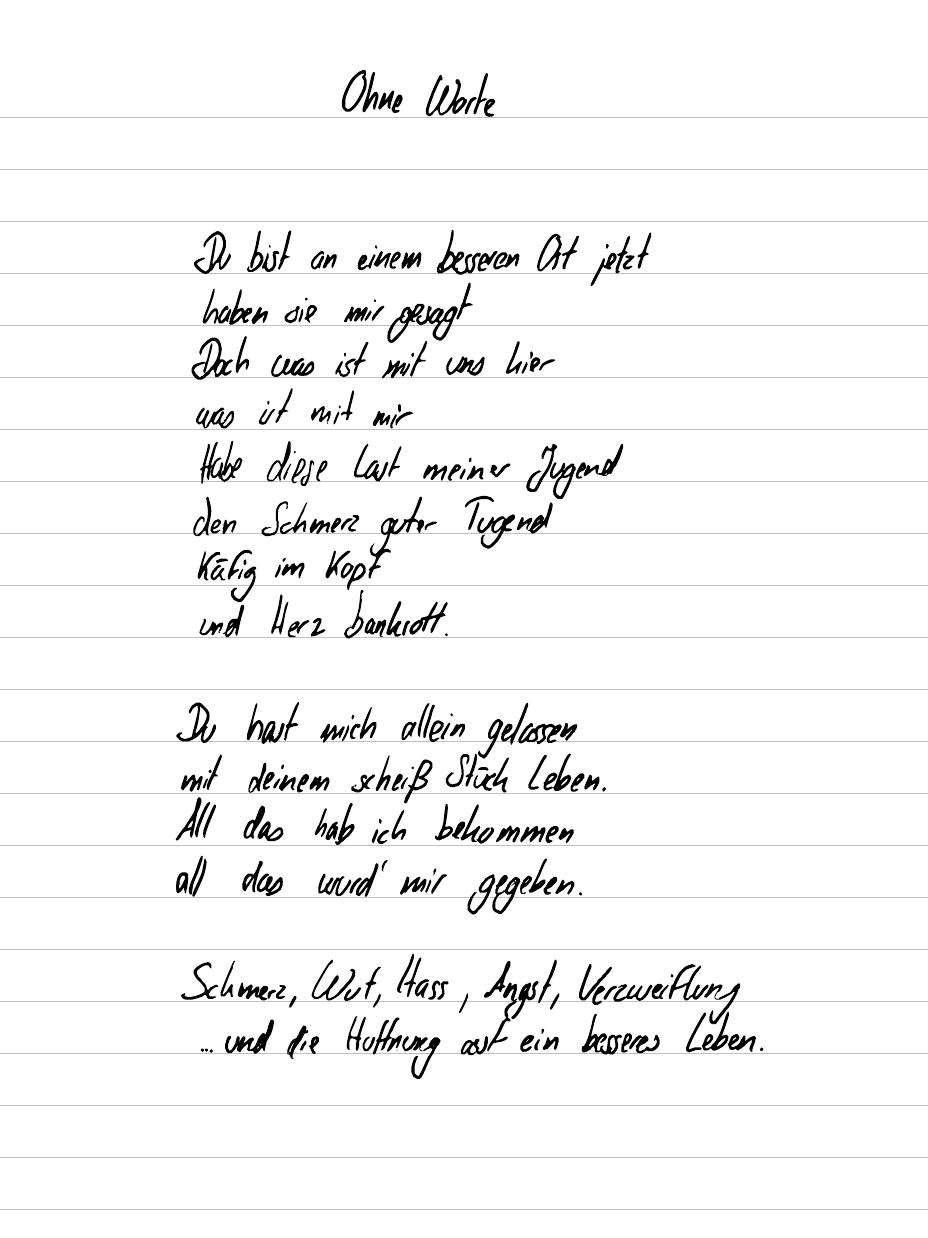 Ohne Worte
Du bist an einem besseren Ort jetzt
haben sie mir gesagt
Doch was ist mit uns hier
was ist mit mir
Habe diese Last meiner Jugend
den Schmerz guter Tugend
Käfig im Kopf
und Herz bankrott.
Du hast mich allein gelassen
mit deinem scheiß Stück Leben.
All das hab ich bekommen
all das wurd' mir gegeben.
Schmerz, Wut, Hass, Angst, Verzweiflung
...und die Hoffnung auf ein besseres Leben.